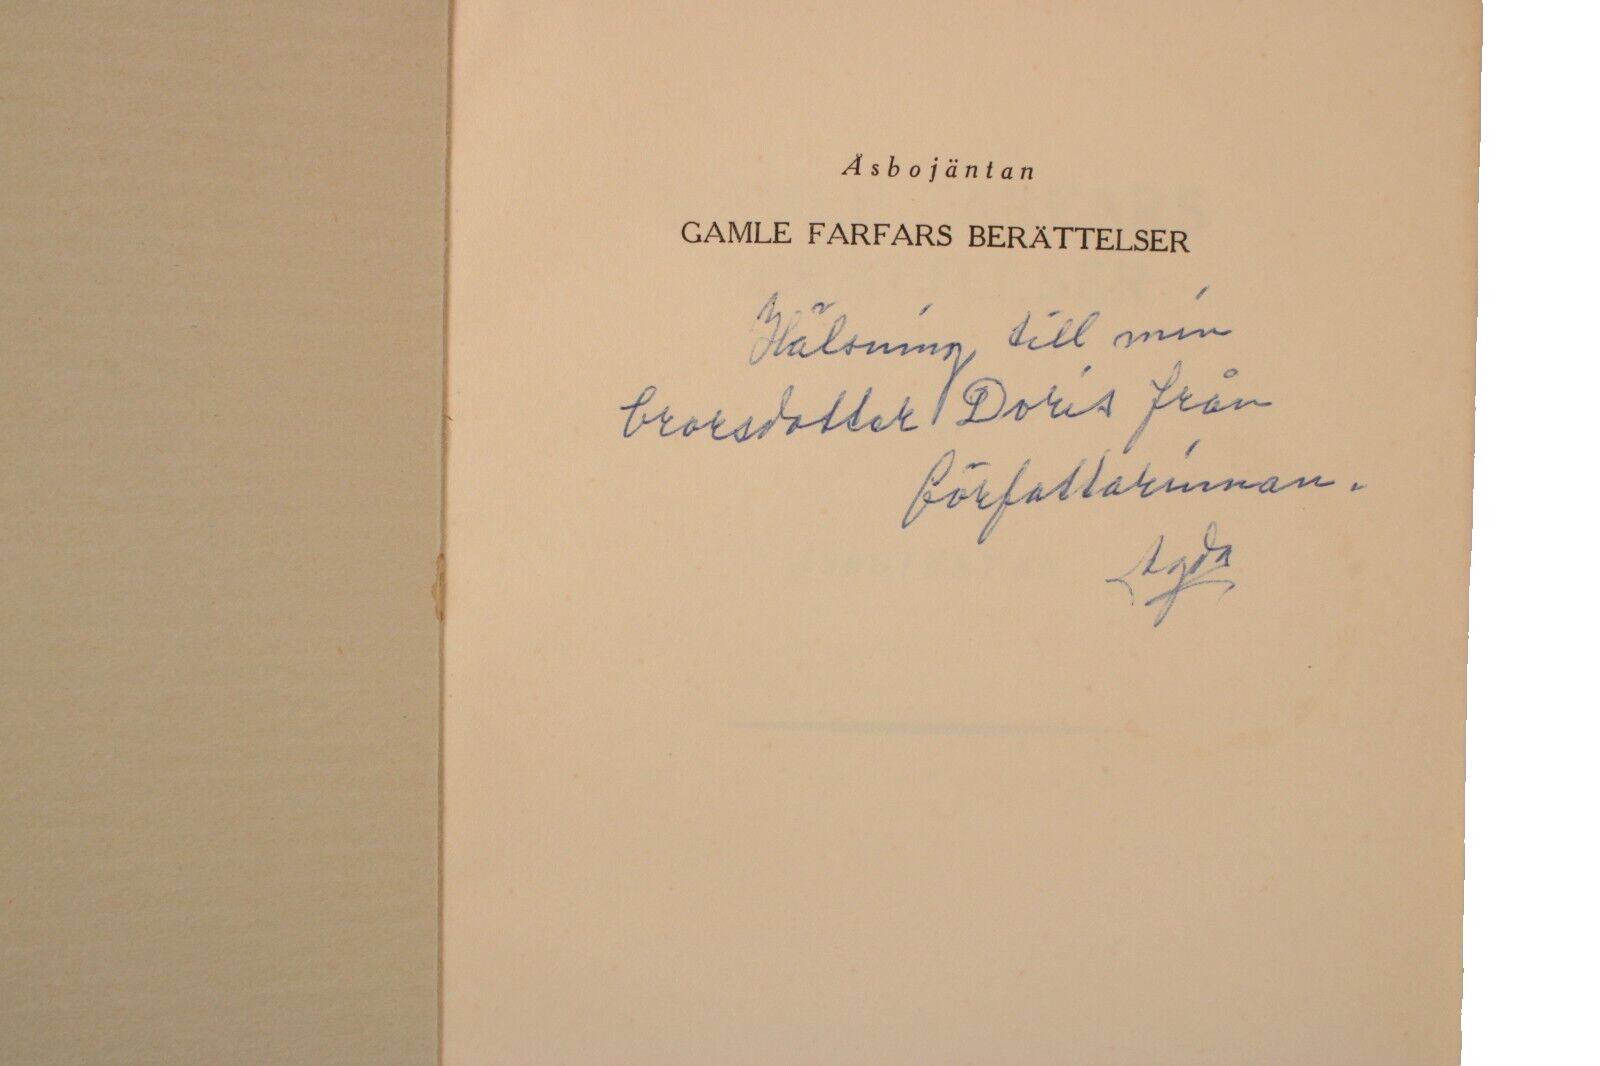 Åsbojäntan
GAMLE FARFARS BERÄTTELSER
Hälsning till min
brorsdotter Doris från
författarinnan.
Agda